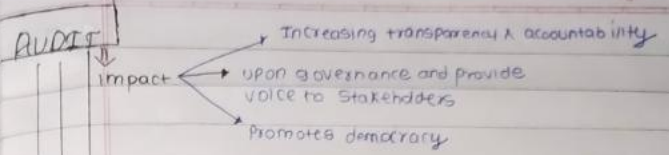 AUDIT
impact
Increasing transparency & accountability
upon governance and provide
voice to Stakehdders
Promotes democracy